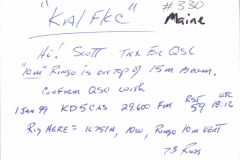 "KN1/FKC" #330
Maine
Hi! Scott Tnx For QSL
"10m" Ringo is on top of 15m Beam.
Confirm QSO with
RST UTC
1 JAN 99 KD5CAS 29.600 FM 59 18:12
Rig HERE = IC751A, 10W, Ringo 10m VERT
73 Russ